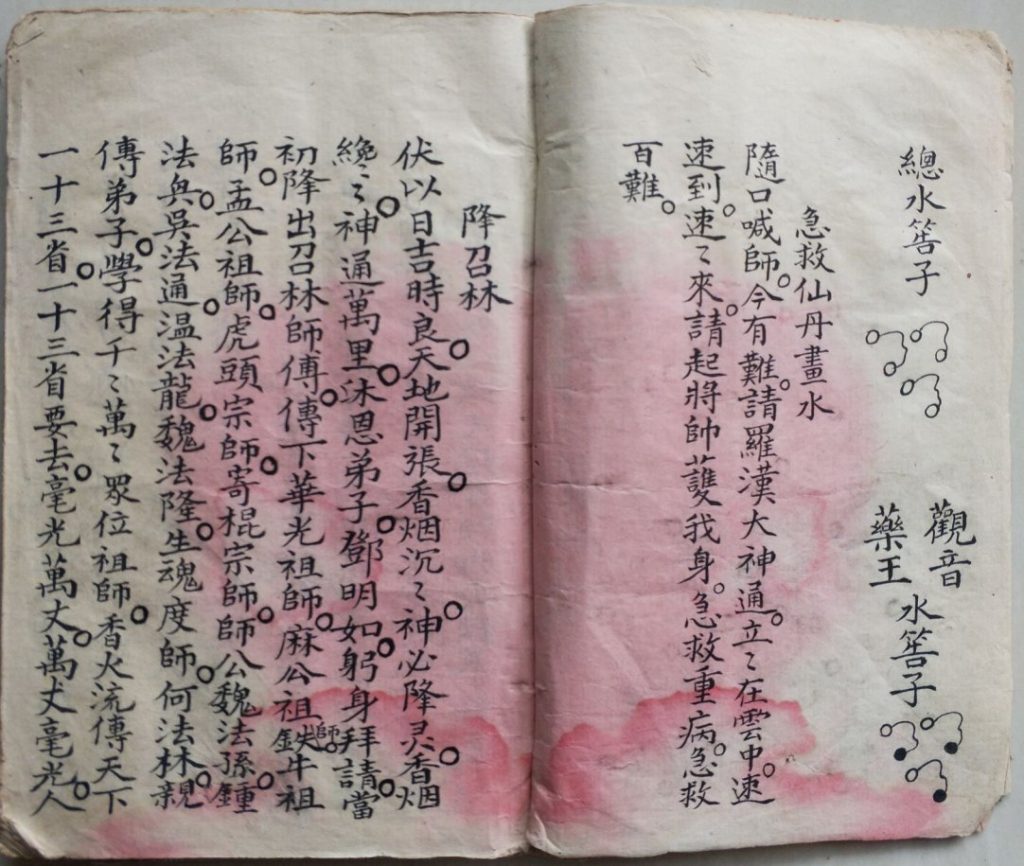 總水筶子
觀音
藥王
水筶子
急救仙丹畫水
隨口喊師。今有難。請羅漢大神通。立〻在雲中。速
速到。速〻來。請起將帥䕶我身。急救重病。急救
百難。
降召林
伏以日吉時良。天地開張。香烟沉〻。神必降灵。香烟
纔〻。神通萬里。沐恩弟子。鄧明如。躬身拜請。當
初降出召林師傅。傳下華光祖師。麻公祖師。鉄牛祖
師。孟公祖師。虎頭宗師。寄棍宗師。師公魏法孫。鍾
法兵。吳法通。温法龍。魏法隆。生魂度師。何法林。親
傳弟子。學得千〻萬〻。眾位祖師。香火流傳天下
一十三省。一十三省要去。毫光萬丈。萬丈毫光。人